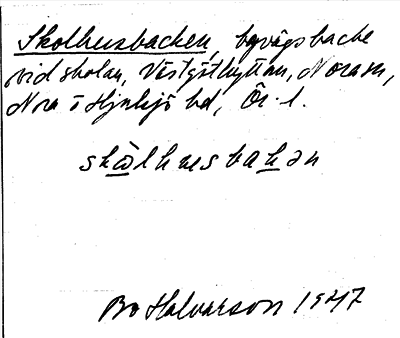 Skolhusbacken, byvägsbacke
vid skolan, Västgöthyttan, Nora sn,
Nora o Hjulsjö hd, Ör. l.
skωlhusbakən
Bo Halvarson 1947